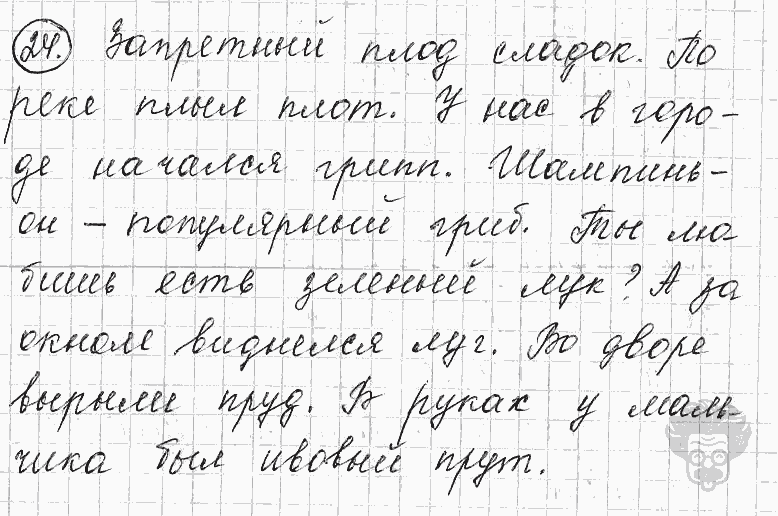 24. Запретный плод сладок. По
реке плыл плот. У нас в горо-
де начался грипп. Шампинь-
он – популярный гриб. Ты лю-
бишь есть зеленый лук? А за
окном виднелся луг. Во дворе
вырыли пруд. В руках у маль-
чика был ивовый прут.